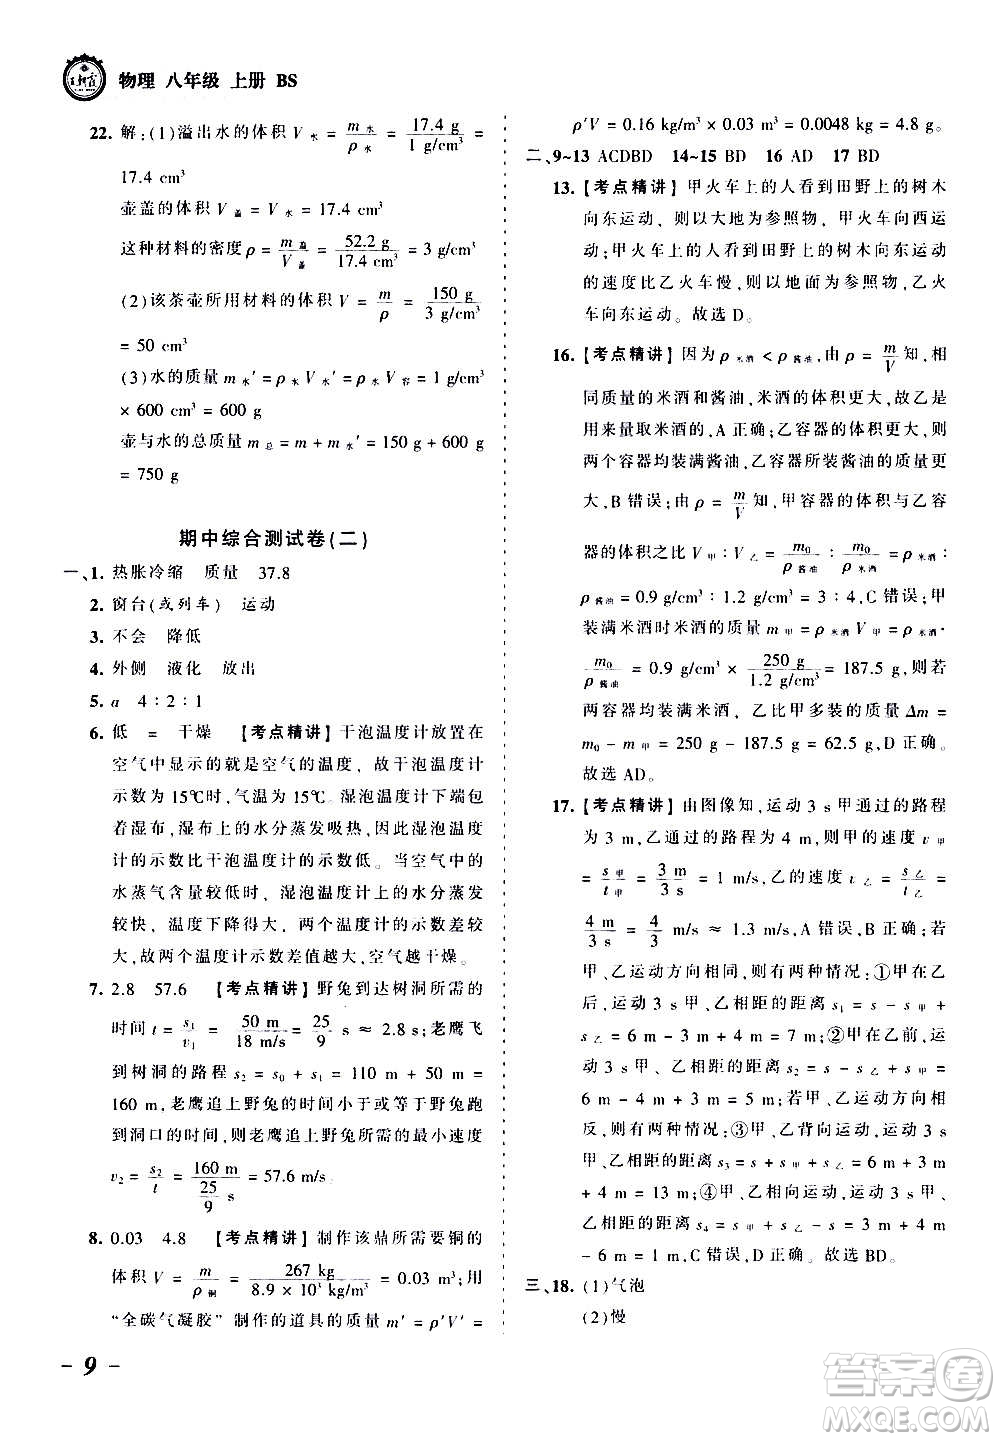 王朝霞
物理 八年级 上册 BS
22. 解:(1)溢出水的体积 V水 = m水/ρ水 = 17.4 g/1 g/cm³ =
17.4 cm³
壶盖的体积 V盖 = V水 = 17.4 cm³
这种材料的密度 ρ = m盖/V盖 = 52.2 g/17.4 cm³ = 3 g/cm³
(2)该茶壶所用材料的体积 V = m/ρ = 150 g/3 g/cm³
= 50 cm³
(3)水的质量 m水′ = ρ水 V水′ = ρ水 V容 = 1 g/cm³
× 600 cm³ = 600 g
壶与水的总质量 m总 = m + m水′ = 150 g + 600 g
= 750 g
期中综合测试卷(二)
一、1. 热胀冷缩 质量 37.8
2. 窗台(或列车) 运动
3. 不会 降低
4. 外侧 液化 放出
5. a 4∶2∶1
6. 低 = 干燥 【考点精讲】干泡温度计放置在
空气中显示的就是空气的温度，故干泡温度计
示数为 15℃时,气温为 15℃。湿泡温度计下端包
着湿布,湿布上的水分蒸发吸热,因此湿泡温度
计的示数比干泡温度计的示数低。当空气中的
水蒸气含量较低时，湿泡温度计上的水分蒸发
较快，温度下降得大，两个温度计的示数差较
大,故两个温度计示数差值越大,空气越干燥。
7. 2.8 57.6 【考点精讲】野兔到达树洞所需的
时间 t = s₁/v₁ = 50 m/18 m/s = 25/9 s ≈ 2.8 s;老鹰飞
到树洞的路程 s₂ = s₀ + s₁ = 110 m + 50 m =
160 m,老鹰追上野兔的时间小于或等于野兔跑
到洞口的时间,则老鹰追上野兔所需的最小速度
v₂ = s₂/t = 160 m/(25/9 s) = 57.6 m/s。
8. 0.03 4.8 【考点精讲】制作该鼎所需要铜的
体积 V = m/ρ铜 = 267 kg/8.9 × 10³ kg/m³ = 0.03 m³;用
“全碳气凝胶”制作的道具的质量 m′ = ρ′V′ =
- 9 -
ρ′V = 0.16 kg/m³ × 0.03 m³ = 0.0048 kg = 4.8 g。
二、9~13 ACDBD 14~15 BD 16 AD 17 BD
13.【考点精讲】甲火车上的人看到田野上的树木
向东运动，则以大地为参照物，甲火车向西运
动;甲火车上的人看到田野上的树木向东运动
的速度比乙火车慢，以田野上的树木为参照物,乙火
车向东运动。故选 D。
16.【考点精讲】因为 ρ米酒 < ρ酱油,由 ρ = m/V 知,相
同质量的米酒和酱油,米酒的体积更大,故乙是
用来量取米酒的,A 正确;乙容器的体积更大,则
两个容器均装满酱油,乙容器所装酱油的质量更
大,B 错误;由 ρ = m/V 知,甲容器的体积与乙容
器的体积之比 V甲∶V乙 = m₀/ρ酱油∶m₀/ρ米酒 = ρ米酒∶
ρ酱油 = 0.9 g/cm³∶1.2 g/cm³ = 3∶4,C 错误;甲
装满米酒时米酒的质量 m甲 = ρ米酒 V甲 = ρ米酒·
m₀/ρ酱油 = 0.9 g/cm³ × 250 g/1.2 g/cm³ = 187.5 g,则若
两容器均装满米酒,乙比甲多装的质量 Δm =
m₀ - m甲 = 250 g - 187.5 g = 62.5 g,D 正确。
故选 AD。
17.【考点精讲】由图像知,运动 3 s 甲通过的路程
为 3 m,乙通过的路程为 4 m,则甲的速度 v甲
= s甲/t甲 = 3 m/3 s = 1 m/s,乙的速度 v乙 = s乙/t乙 =
4 m/3 s = 4/3 m/s ≈ 1.3 m/s,A 错误,B 正确;若
甲、乙运动方向相同,有两种情况:①甲在乙
后,运动 3 s 甲、乙相距的距离 s₁ = s - s甲 +
s乙 = 6 m - 3 m + 4 m = 7 m;②甲在乙前,运动
3 s 甲、乙相距的距离 s₂ = s - s乙 + s甲 =
6 m - 4 m + 3 m = 5 m;若甲、乙运动方向相
反,有两种情况:③甲、乙背向运动,运动 3 s
甲、乙相距的距离 s₃ = s + s甲 + s乙 = 6 m + 3 m
+ 4 m = 13 m;④甲、乙相向运动,运动 3 s 甲、
乙相距的距离 s₄ = s - s甲 - s乙 = 6 m - 3 m - 4 m
- 6 m = 1 m,C 错误,D 正确。故选 BD。
三、18. (1)气泡
(2)慢
答案圈
MXQE.COM